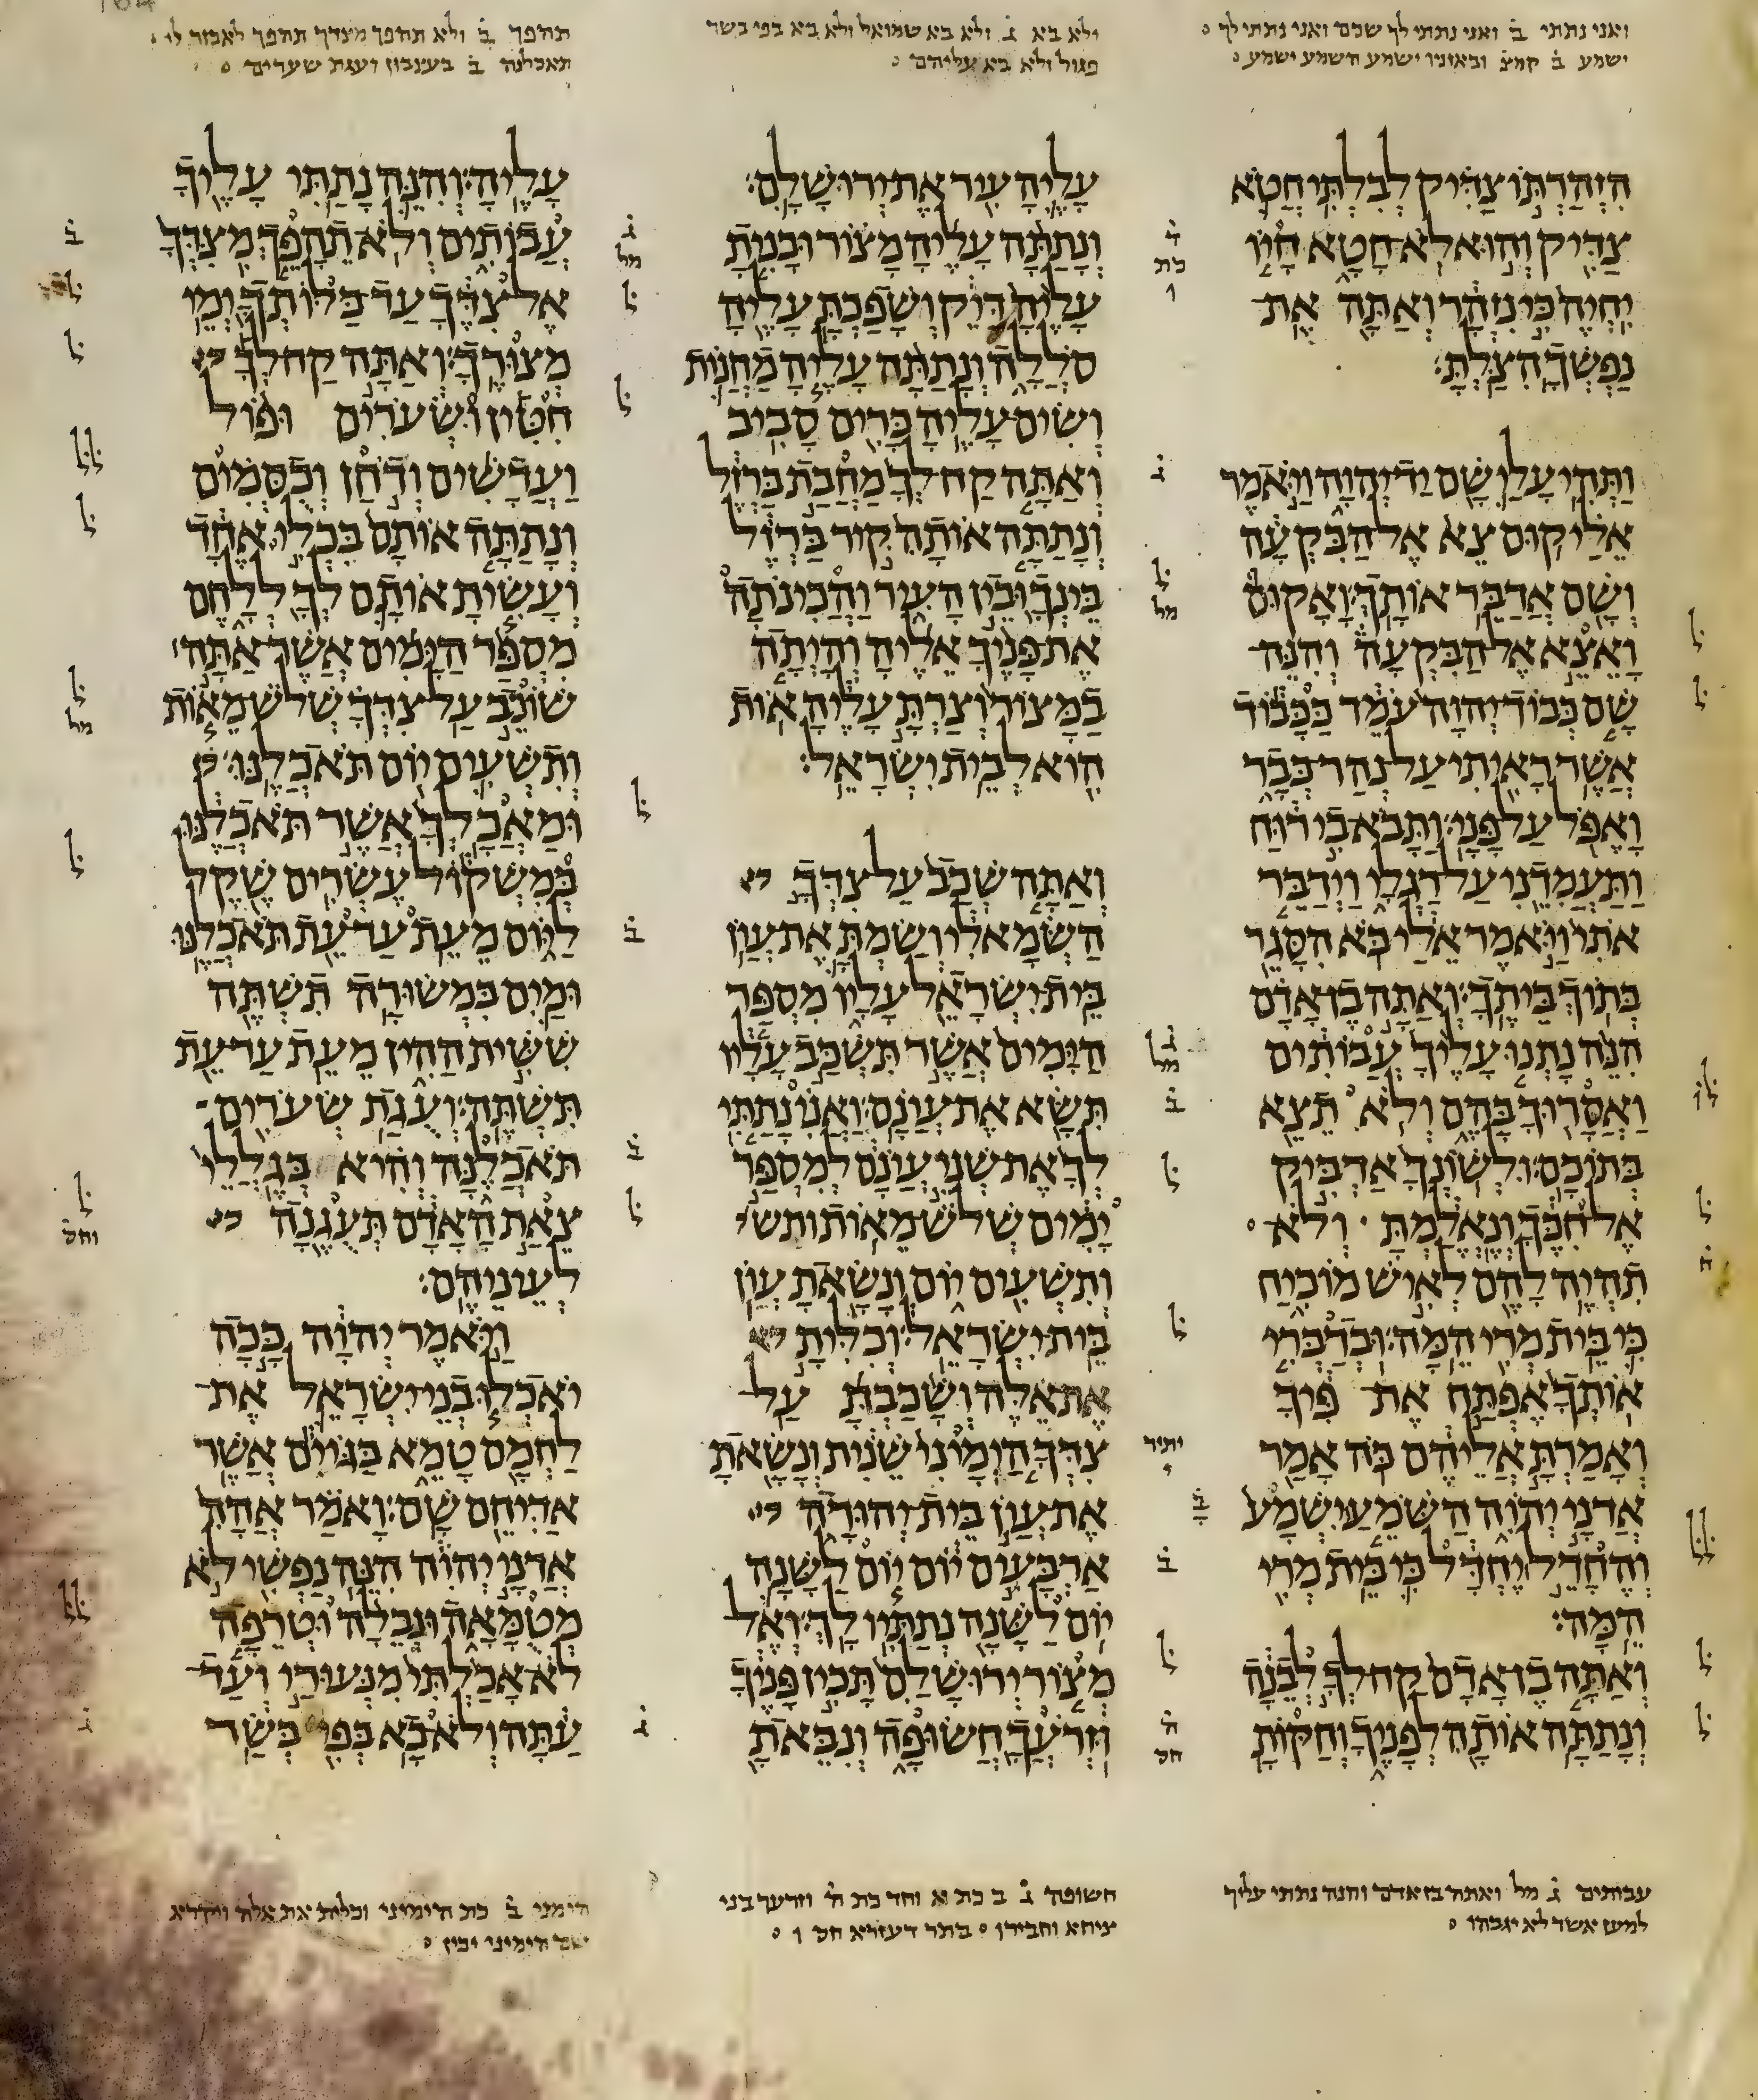 ואני נתתי ב ואני נתתי לך שכם ואני נתתי לך
ישמע ב קמצ ובאזניו ישמע השמע ישמע
ולא בא ג ולא בא שמואל ולא בא בפי בשר
פגול ולא בא עליהם
תהפך ב ולא תהפך מצדך תהפך לאכזר לי
תאכלנה ב בעצבון ועגת שערים
הִזְהַרְתּוֹ צַדִּיק לְבִלְתִּי חֲטֹא
צַדִּיק וְהוּא לֹא חָטָא חָיוֹ
יִחְיֶה כִּי נִזְהָר וְאַתָּה אֶת
נַפְשְׁךָ הִצַּלְתָּ׃
וַתְּהִי עָלַי שָׁם יַד יְהוָה וַיֹּאמֶר
אֵלַי קוּם צֵא אֶל הַבִּקְעָה
וְשָׁם אֲדַבֵּר אוֹתָךְ׃ וָאָקוּם
וָאֵצֵא אֶל הַבִּקְעָה וְהִנֵּה
שָׁם כְּבוֹד יְהוָה עֹמֵד כַּכָּבוֹד
אֲשֶׁר רָאִיתִי עַל נְהַר כְּבָר
וָאֶפֹּל עַל פָּנָי׃ וַתָּבֹא בִי רוּחַ
וַתַּעֲמִדֵנִי עַל רַגְלָי וַיְדַבֵּר
אֹתִי וַיֹּאמֶר אֵלַי בֹּא הִסָּגֵר
בְּתוֹךְ בֵּיתֶךָ׃ וְאַתָּה בֶן אָדָם
הִנֵּה נָתְנוּ עָלֶיךָ עֲבוֹתִים
וַאֲסָרוּךָ בָּהֶם וְלֹא תֵצֵא
בְּתוֹכָם׃ וּלְשׁוֹנְךָ אַדְבִּיק
אֶל חִכֶּךָ וְנֶאֱלַמְתָּ וְלֹא
תִהְיֶה לָהֶם לְאִישׁ מוֹכִיחַ
כִּי בֵּית מְרִי הֵמָּה׃ וּבְדַבְּרִי
אוֹתְךָ אֶפְתַּח אֶת פִּיךָ
וְאָמַרְתָּ אֲלֵיהֶם כֹּה אָמַר
אֲדֹנָי יְהוִה הַשֹּׁמֵעַ יִשְׁמָע
וְהֶחָדֵל יֶחְדָּל כִּי בֵּית מְרִי
הֵמָּה׃
וְאַתָּה בֶן אָדָם קַח לְךָ לְבֵנָה
וְנָתַתָּה אוֹתָהּ לְפָנֶיךָ וְחַקּוֹתָ
עָלֶיהָ עִיר אֶת יְרוּשָׁלִָם׃
וְנָתַתָּה עָלֶיהָ מָצוֹר וּבָנִיתָ
עָלֶיהָ דָּיֵק וְשָׁפַכְתָּ עָלֶיהָ
סֹלְלָה וְנָתַתָּה עָלֶיהָ מַחֲנוֹת
וְשִׂים עָלֶיהָ כָּרִים סָבִיב
וְאַתָּה קַח לְךָ מַחֲבַת בַּרְזֶל
וְנָתַתָּה אוֹתָהּ קִיר בַּרְזֶל
בֵּינְךָ וּבֵין הָעִיר וַהֲכִינֹתָה
אֶת פָּנֶיךָ אֵלֶיהָ וְהָיְתָה
בַמָּצוֹר וְצַרְתָּ עָלֶיהָ אוֹת
הִיא לְבֵית יִשְׂרָאֵל׃
וְאַתָּה שְׁכַב עַל צִדְּךָ
הַשְּׂמָאלִי וְשַׂמְתָּ אֶת עֲוֺן
בֵּית יִשְׂרָאֵל עָלָיו מִסְפַּר
הַיָּמִים אֲשֶׁר תִּשְׁכַּב עָלָיו
תִּשָּׂא אֶת עֲוֺנָם׃ וַאֲנִי נָתַתִּי
לְךָ אֶת שְׁנֵי עֲוֺנָם לְמִסְפַּר
יָמִים שְׁלֹשׁ מֵאוֹת ותש
וְתִשְׁעִים יוֹם וְנָשָׂאתָ עֲוֺן
בֵּית יִשְׂרָאֵל׃ וְכִלִּיתָ
אֶת אֵלֶּה וְשָׁכַבְתָּ עַל
צִדְּךָ הַיְמָונִי שֵׁנִית וְנָשָׂאתָ
אֶת עֲוֺן בֵּית יְהוּדָה
אַרְבָּעִים יוֹם יוֹם לַשָּׁנָה
יוֹם לַשָּׁנָה נְתַתִּיו לָךְ׃ וְאֶל
מְצוֹר יְרוּשָׁלִַם תָּכִין פָּנֶיךָ
וּזְרֹעֲךָ חֲשׂוּפָה וְנִבֵּאתָ
עָלֶיהָ׃ וְהִנֵּה נָתַתִּי עָלֶיךָ
עֲבוֹתִים וְלֹא תֵהָפֵךְ מִצִּדְּךָ
אֶל צִדֶּךָ עַד כַּלּוֹתְךָ יְמֵי
מְצוּרֶךָ׃ וְאַתָּה קַח לְךָ
חִטִּין וּשְׂעֹרִים וּפוֹל
וַעֲדָשִׁים וְדֹחַן וְכֻסְּמִים
וְנָתַתָּה אוֹתָם בִּכְלִי אֶחָד
וְעָשִׂיתָ אוֹתָם לְךָ לְלָחֶם
מִסְפַּר הַיָּמִים אֲשֶׁר אַתָּה
שׁוֹכֵב עַל צִדְּךָ שְׁלֹשׁ מֵאוֹת
וְתִשְׁעִים יוֹם תֹּאכְלֶנּוּ׃
וּמַאֲכָלְךָ אֲשֶׁר תֹּאכְלֶנּוּ
בְּמִשְׁקוֹל עֶשְׂרִים שֶׁקֶל
לַיּוֹם מֵעֵת עַד עֵת תֹּאכְלֶנּוּ׃
וּמַיִם בִּמְשׂוּרָה תִשְׁתֶּה
שִׁשִּׁית הַהִין מֵעֵת עַד עֵת
תִּשְׁתֶּה׃ וְעֻגַת שְׂעֹרִים
תֹּאכְלֶנָּה וְהִיא בְּגֶלְלֵי
צֵאַת הָאָדָם תְּעֻגֶנָה
לְעֵינֵיהֶם׃
וַיֹּאמֶר יְהוָה כָּכָה
יֹאכְלוּ בְנֵי יִשְׂרָאֵל אֶת
לַחְמָם טָמֵא בַּגּוֹיִם אֲשֶׁר
אַדִּיחֵם שָׁם׃ וָאֹמַר אֲהָהּ
אֲדֹנָי יְהוִה הִנֵּה נַפְשִׁי לֹא
מְטֻמָּאָה וּנְבֵלָה וּטְרֵפָה
לֹא אָכַלְתִּי מִנְּעוּרַי וְעַד
עַתָּה וְלֹא בָא בְּפִי בְּשַׂר
עבותים ג מל ואתה בן אדם והנה נתתי עליך
למען אשר לא יגבהו
חשופה ג ב כת א וחד כת ה וזרעך בני
ציחא וחבירו בתר דעזרא חס ו
הימני ב כת הימיני וכלית את אלה ויקרא
שם הימיני יכין